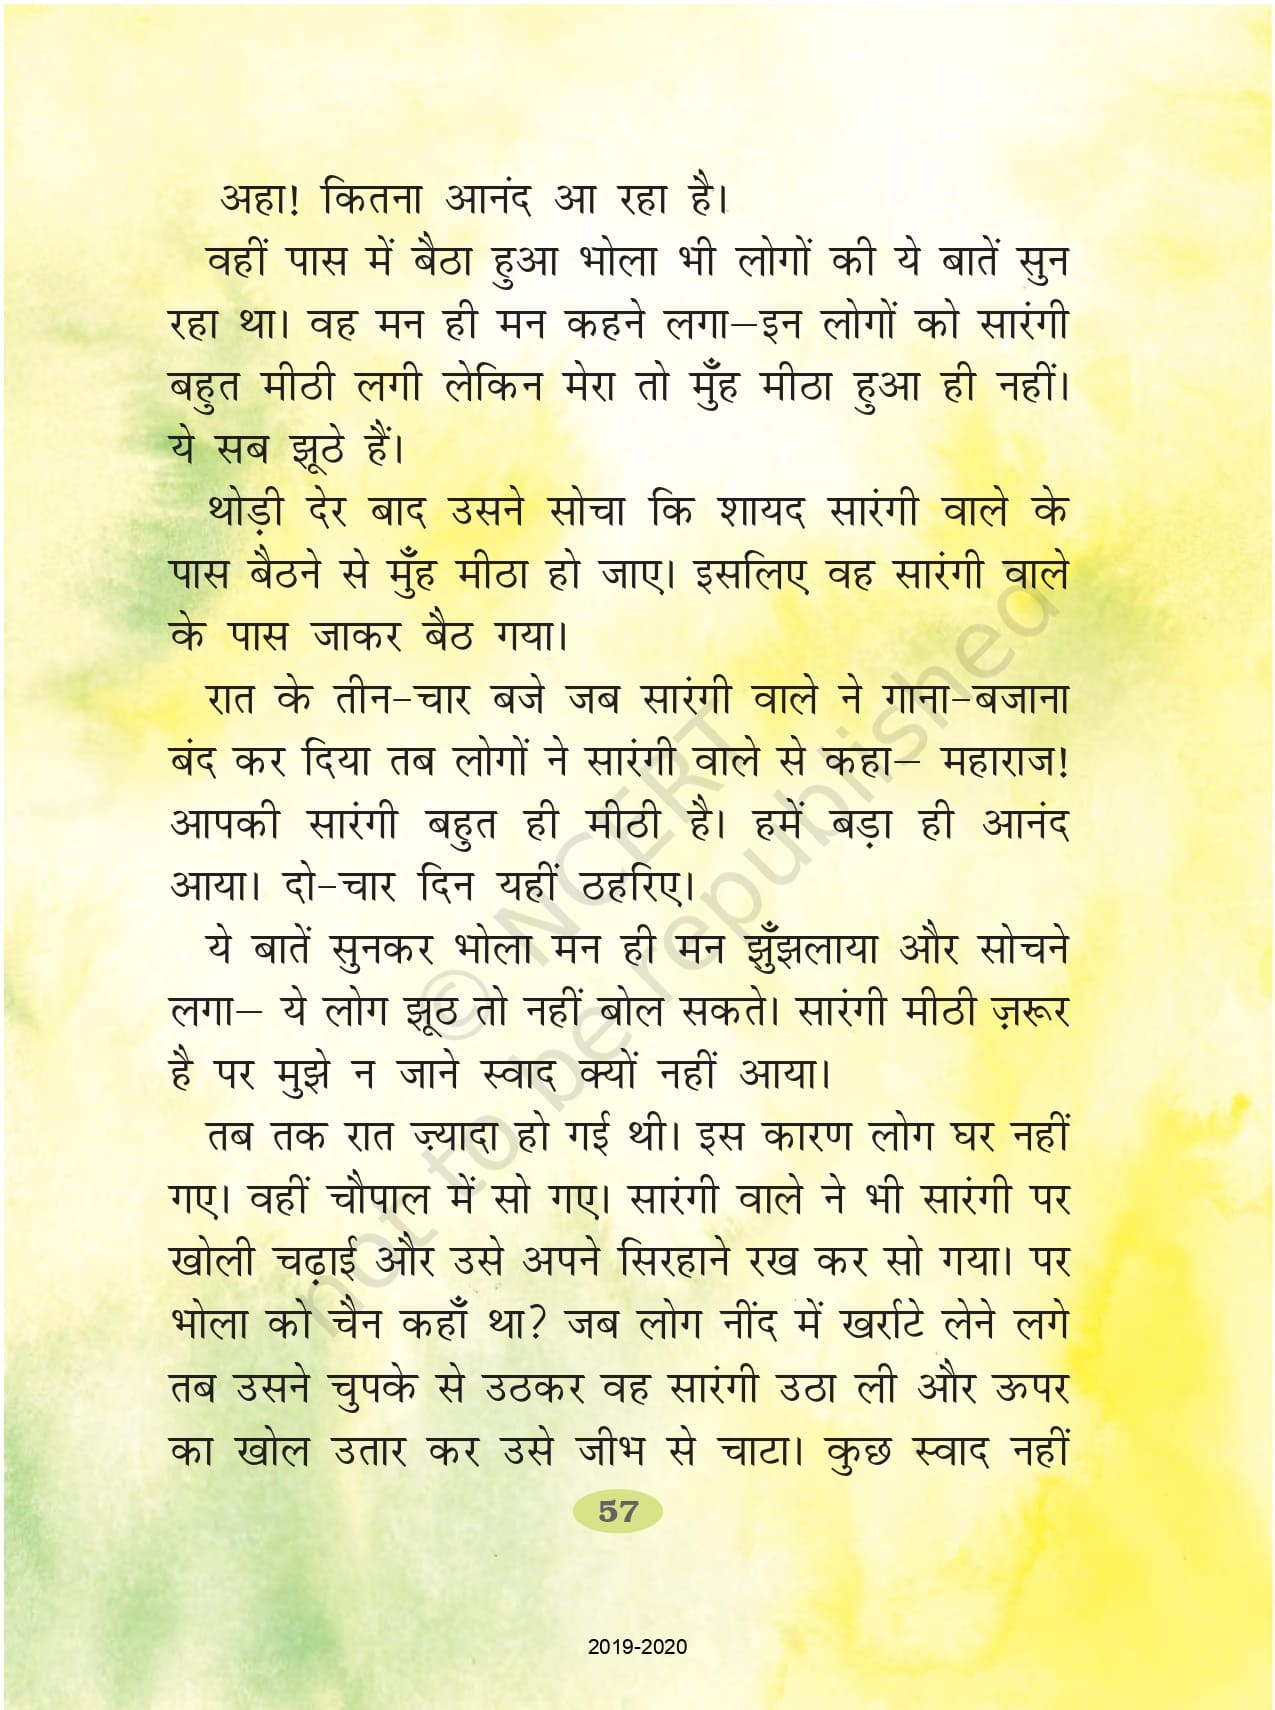 अहा! कितना आनंद आ रहा है।
वहीं पास में बैठा हुआ भोला भी लोगों की ये बातें सुन
रहा था। वह मन ही मन कहने लगा–इन लोगों को सारंगी
बहुत मीठी लगी लेकिन मेरा तो मुँह मीठा हुआ ही नहीं।
ये सब झूठे हैं।
थोड़ी देर बाद उसने सोचा कि शायद सारंगी वाले के
पास बैठने से मुँह मीठा हो जाए। इसलिए वह सारंगी वाले
के पास जाकर बैठ गया।
रात के तीन-चार बजे जब सारंगी वाले ने गाना-बजाना
बंद कर दिया तब लोगों ने सारंगी वाले से कहा– महाराज!
आपकी सारंगी बहुत ही मीठी है। हमें बड़ा ही आनंद
आया। दो-चार दिन यहीं ठहरिए।
ये बातें सुनकर भोला मन ही मन झुँझलाया और सोचने
लगा– ये लोग झूठ तो नहीं बोल सकते। सारंगी मीठी ज़रूर
है पर मुझे न जाने स्वाद क्यों नहीं आया।
तब तक रात ज़्यादा हो गई थी। इस कारण लोग घर नहीं
गए। वहीं चौपाल में सो गए। सारंगी वाले ने भी सारंगी पर
खोली चढ़ाई और उसे अपने सिरहाने रख कर सो गया। पर
भोला को चैन कहाँ था? जब लोग नींद में खर्राटे लेने लगे
तब उसने चुपके से उठकर वह सारंगी उठा ली और ऊपर
का खोल उतार कर उसे जीभ से चाटा। कुछ स्वाद नहीं
57
2019-2020
© NCERT
not to be republished